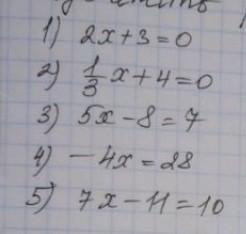 1) 2x+3=0
2) 1/3 x+4=0
3) 5x-8=7
4) -4x=28
5) 7x-11=10